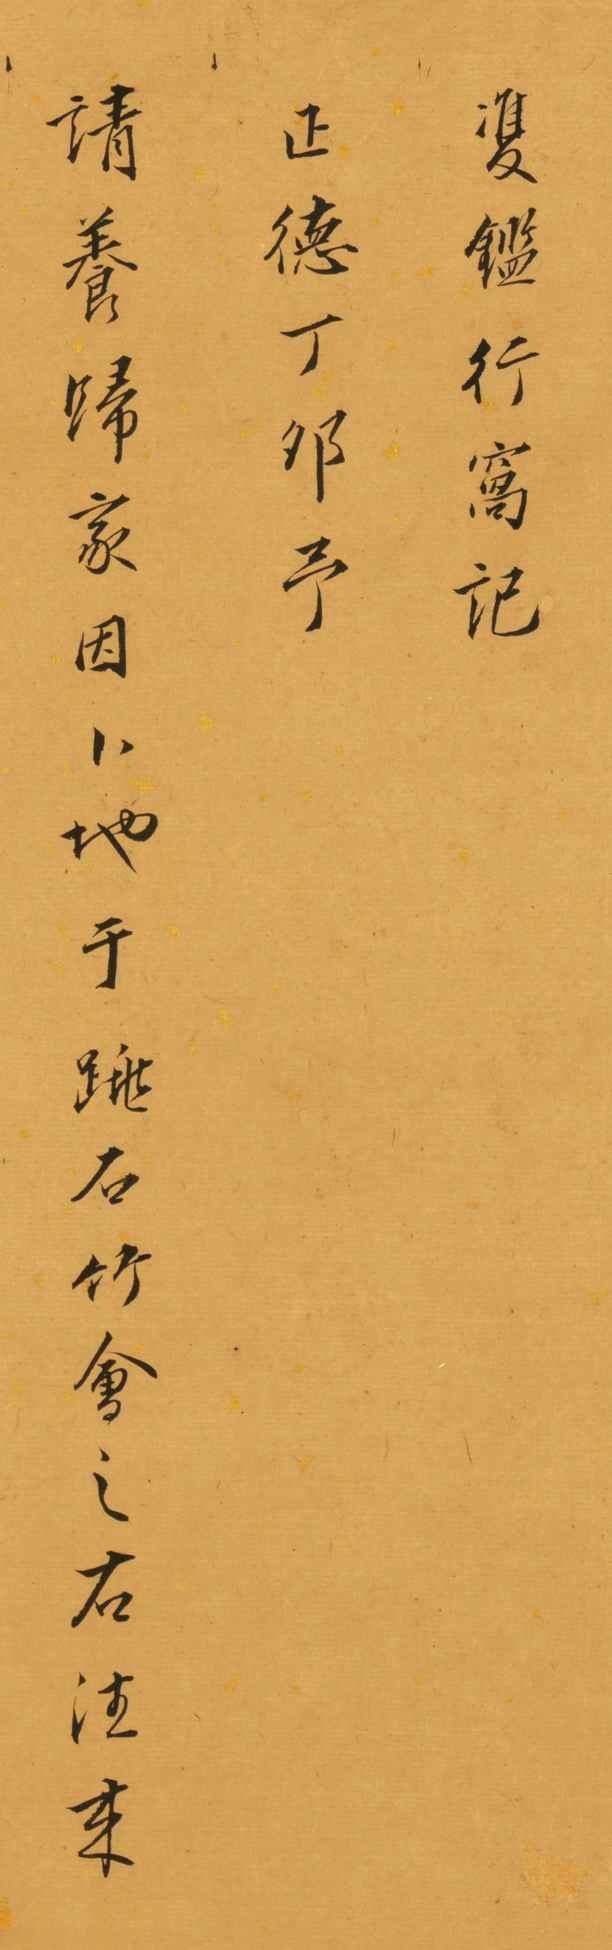 雙鑑行窩記
正德丁卯予
請養歸家因卜地于跳石竹會之右往来